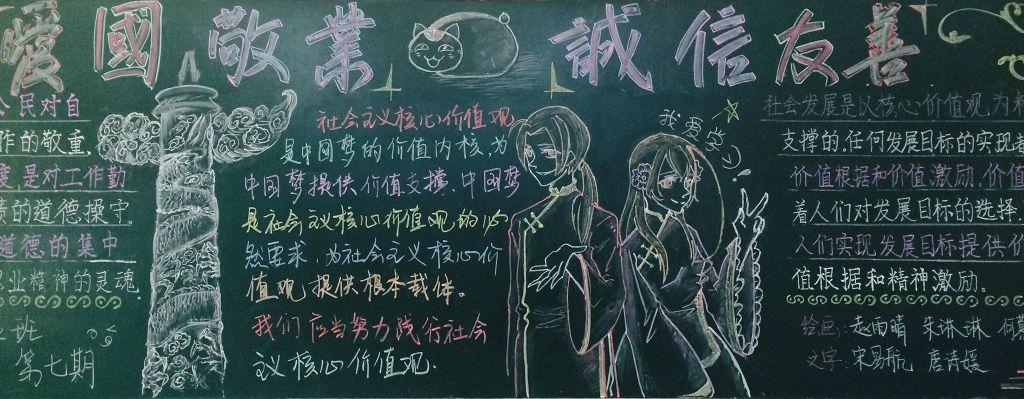 愛國敬業 誠信友善
民对自
作的敬重
是对工作勤
的道德操守。
道德的集中
业精神的灵魂。
班
第七期
社会主义核心价值观
是中国梦的价值内核,为
中国梦提供价值支撑、中国梦
是社会主义核心价值观的必
然要求,为社会主义核心价
值观提供根本载体。
我们应当努力践行社会
主义核心价值观.
我爱党
社会发展是以核心价值观为
支撑的,任何发展目标的实现
价值根据和价值激励,价值
着人们对发展目标的选择.
人们实现发展目标提供价
值根据和精神激励.
绘画:赵雨晴 朱琳琳 何
文字:宋易航 唐诗媛